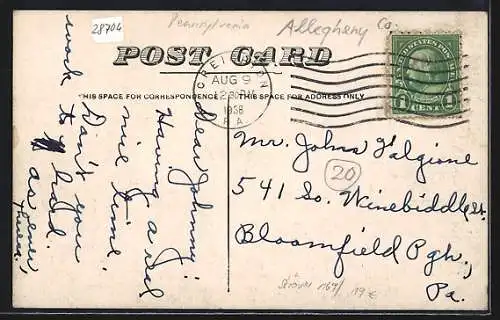 28704
Pennsylvania
Allegheny Co.
POST CARD
THIS SPACE FOR CORRESPONDENCE
THIS SPACE FOR ADDRESS ONLY
CREIGHTON
AUG 9
12
1938
PA.
UNITED STATES POSTAGE
1 CENT 1
Dear Johnny:
Having a real
nice time
Don't you
work to hard
as ever,
Mr. John Falgione
541 So. Winebiddle St.
Bloomfield Pgh.,
Pa.
20
167/ 19 €